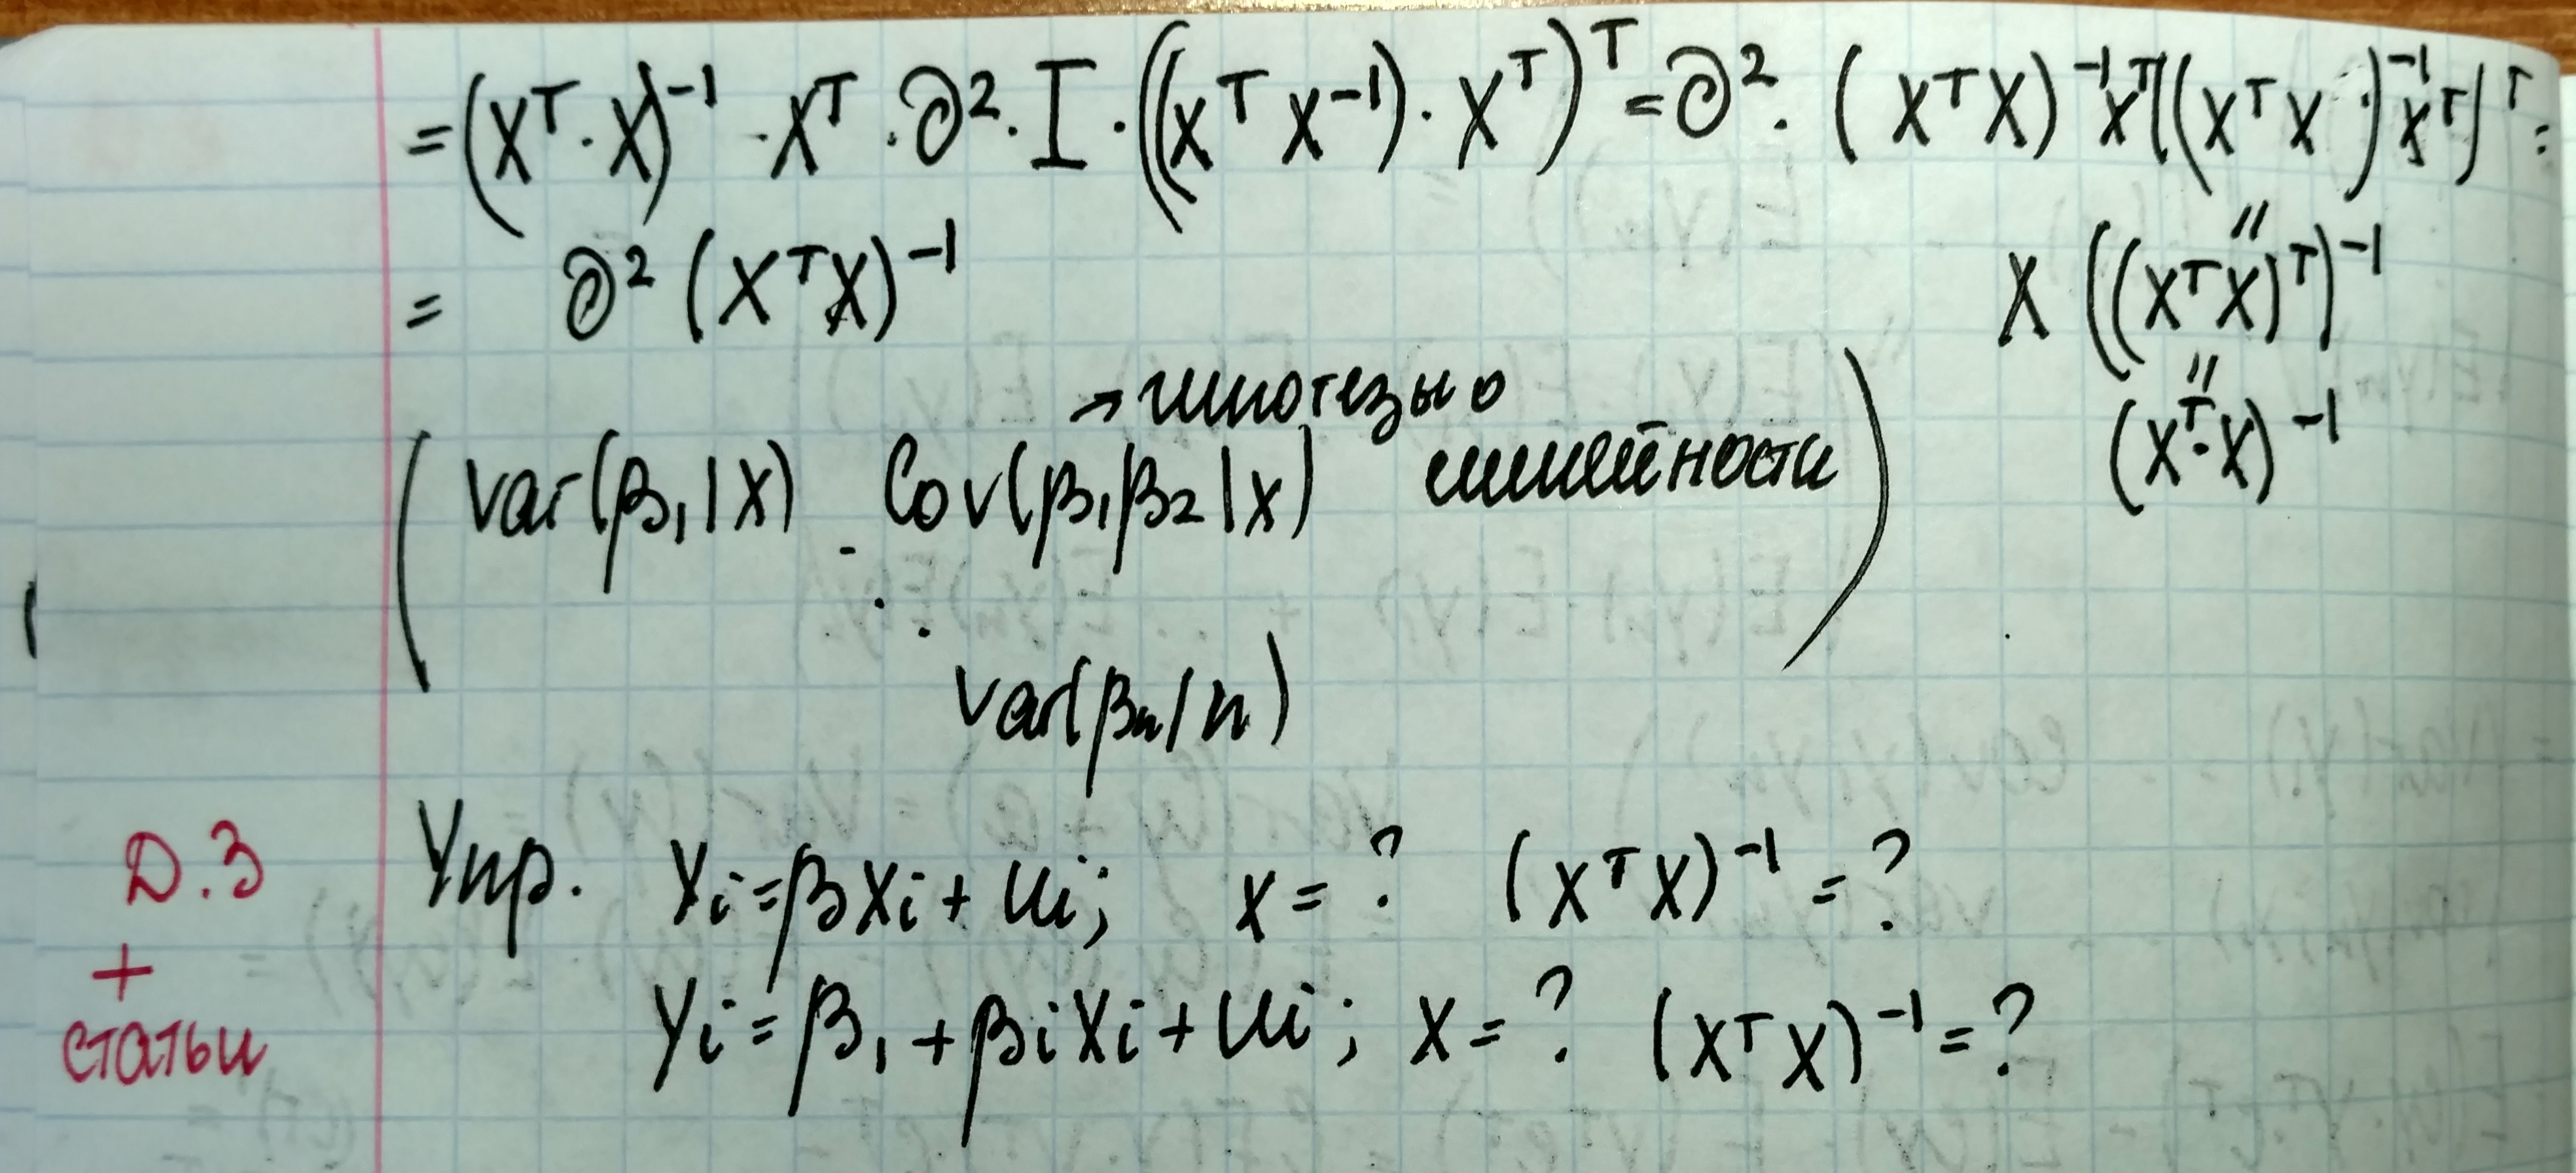 = (X^T · X)^-1 · X^T · ∂^2 · I · ((X^T X^-1) · X^T)^T = ∂^2 · (X^T X)^-1 X^T ((X^T X)^-1 X^T)^T =
= ∂^2 (X^T X)^-1
X ((X^T X)^T)^-1
"
(X^T · X)^-1
"
→ гипотезы о
линейности
( var(β1 | X) Cov(β1 β2 | X) )
var(βn / n)
Д.З + статьи
Упр. Yi = βXi + ui; X = ? (X^T X)^-1 = ?
Yi = β1 + βi Xi + ui; X = ? (X^T X)^-1 = ?